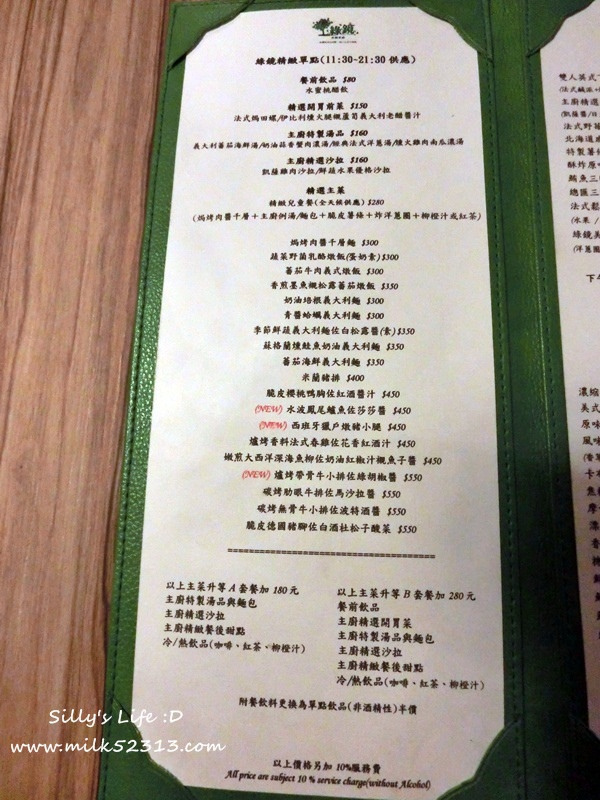 綠鏡
綠鏡精緻單點(11:30~21:30供應)
餐前飲品 $80
水蜜桃醋飲
精選開胃前菜 $150
法式焗田螺/伊比利煙火腿襯蘆筍義大利老醋醬汁
主廚特製湯品 $160
義大利蕃茄海鮮湯/奶油蒜香蟹肉濃湯/經典法式洋蔥湯/燻火雞肉南瓜濃湯
主廚精選沙拉 $160
凱薩雞肉沙拉/鮮蔬水果優格沙拉
精選主菜
精緻兒童餐(全天候供應) $280
(焗烤肉醬千層＋主廚例湯/麵包＋脆皮薯條＋炸洋蔥圈＋柳橙汁或紅茶)
焗烤肉醬千層麵 $300
蔬菜野菌乳酪燉飯(蛋奶素)$300
蕃茄牛肉義式燉飯 $300
香煎墨魚襯松露蕃茄燉飯 $350
奶油培根義大利麵 $300
青醬蛤蠣義大利麵 $300
季節鮮蔬義大利麵佐白松露醬(素)$350
蘇格蘭燻鮭魚奶油義大利麵 $350
蕃茄海鮮義大利麵 $350
米蘭豬排 $400
脆皮櫻桃鴨胸佐紅酒醬汁 $450
(NEW) 水波鳳尾鱸魚佐莎莎醬 $450
(NEW) 西班牙獵戶燉豬小腿 $450
爐烤香料法式春雞佐花香紅酒汁 $450
嫩煎大西洋深海魚柳佐奶油紅椒汁襯魚子醬 $450
(NEW) 爐烤帶骨牛小排佐綠胡椒醬 $550
碳烤肋眼牛排佐馬沙拉醬 $550
碳烤無骨牛小排佐波特酒醬 $550
脆皮德國豬腳佐白酒杜松子酸菜 $550
========================================
以上主菜升等 A 套餐加 180 元
主廚特製湯品與麵包
主廚精選沙拉
主廚精緻餐後甜點
冷/熱飲品(咖啡、紅茶、柳橙汁)
以上主菜升等 B 套餐加 280 元
餐前飲品
主廚精選開胃菜
主廚特製湯品與麵包
主廚精選沙拉
主廚精緻餐後甜點
冷/熱飲品(咖啡、紅茶、柳橙汁)
附餐飲料更換為單點飲品(非酒精性)半價
以上價格另加 10%服務費
All price are subject 10 % service charge(without Alcohol)
雙人英式下
(法式鹹派
主廚精選
(凱薩醬/日
法式野菇
北海道
特製薯條
酥炸原味
鮪魚三
總匯三
法式鬆
(水果 /
綠鏡美
(洋蔥圈
下午
濃縮
美式
原味
風味
(香草
卡布
焦糖
摩卡
濃
香
Silly's Life :D
www.milk52313.com